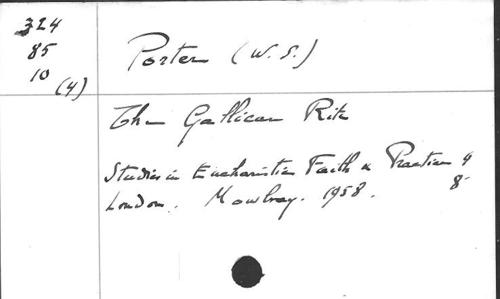 324
85
10
(4)
Porter (W. S.)
The Gallican Rite
Studies in Eucharistic Faith & Practice 4
London. Mowbray. 1958. 8-